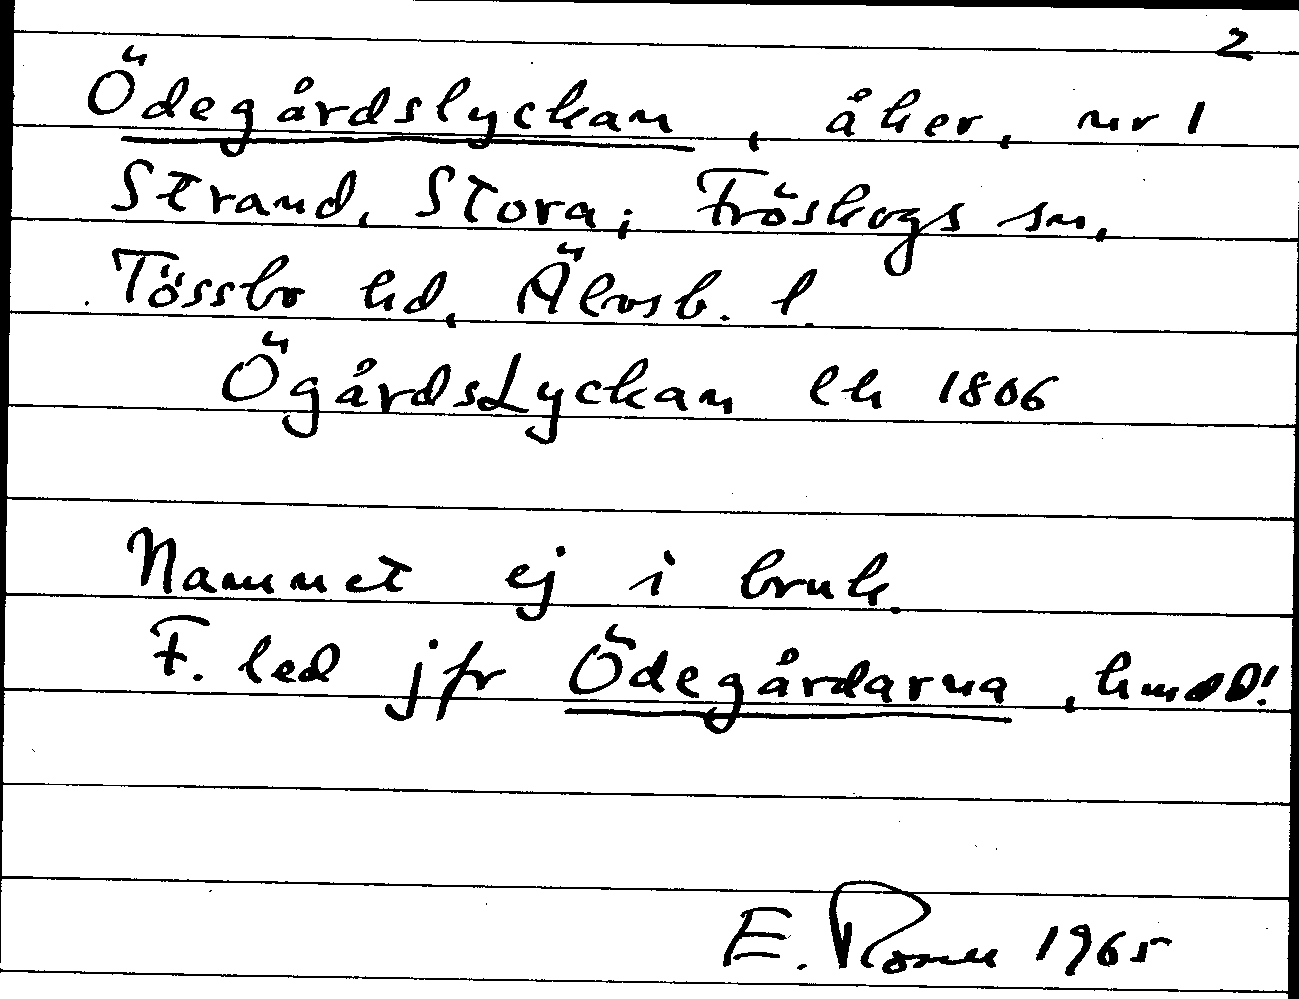 2
Ödegårdslyckan, åker, nr 1
Strand, Stora, Fröskogs sn,
Tössbo hd, Älvsb. l.
ÖgårdsLyckan lh 1806
Namnet ej i bruk.
F. led jfr Ödegårdarna,
E. 1965